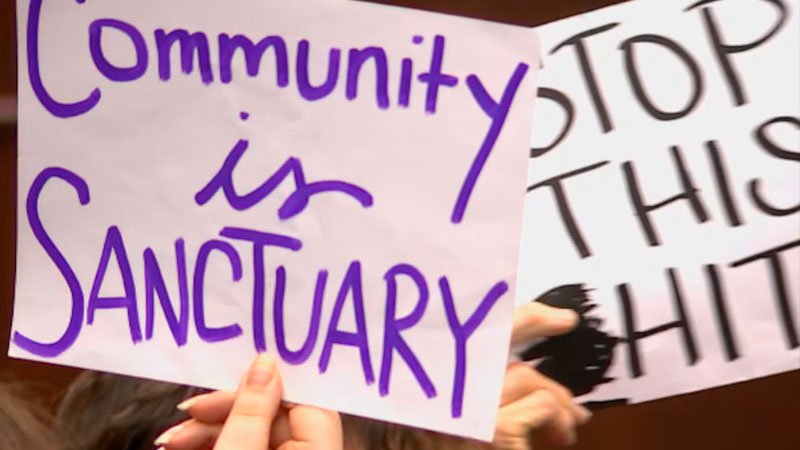 Community
is
SANCTUARY
STOP
THIS
HIT